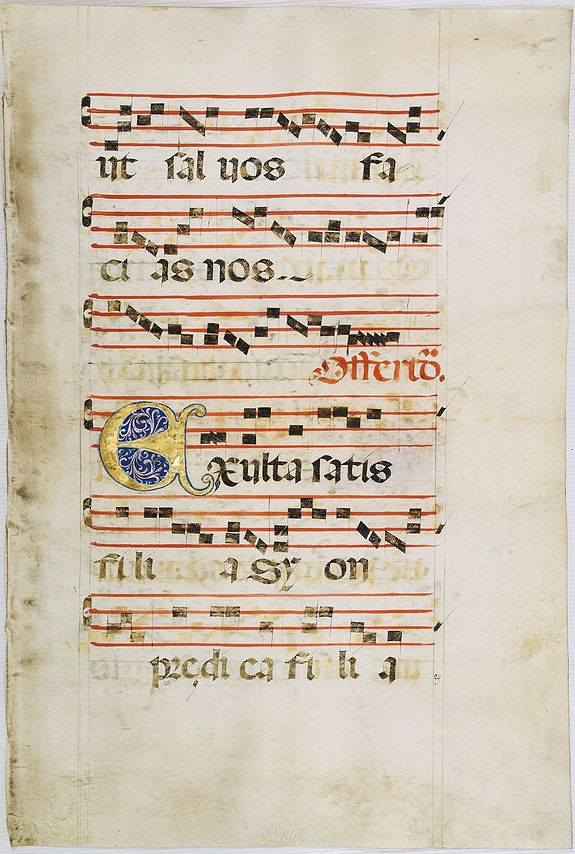 ut sal uos fa
ci as nos
Offertō.
Exulta satis
fi li a Sy on
predi ca fi li a